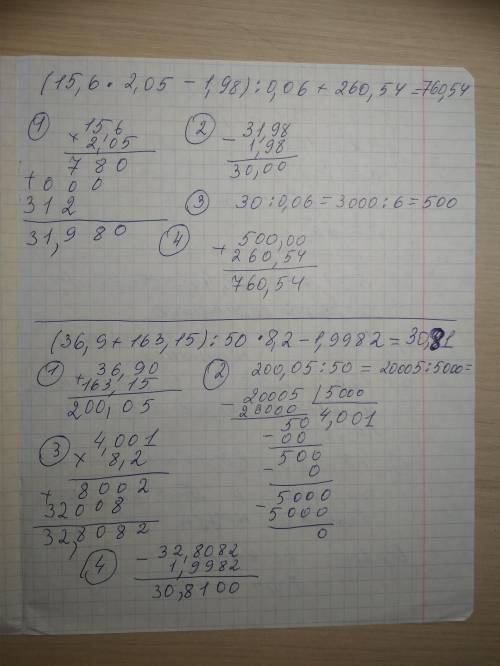 (15,6 · 2,05 - 1,98) : 0,06 + 260,54 = 760,54
① 15,6
× 2,05
780
+ 000
312
31,980
② - 31,98
1,98
30,00
③ 30 : 0,06 = 3000 : 6 = 500
④ + 500,00
260,54
760,54
(36,9 + 163,15) : 50 · 8,2 - 1,9982 = 30,81
① + 36,90
163,15
200,05
② 200,05 : 50 = 20005 : 5000 =
- 20005 | 5000
20000 4,001
50
- 00
500
- 0
5000
- 5000
0
③ 4,001
× 8,2
+ 8002
32008
32,8082
④ - 32,8082
1,9982
30,8100